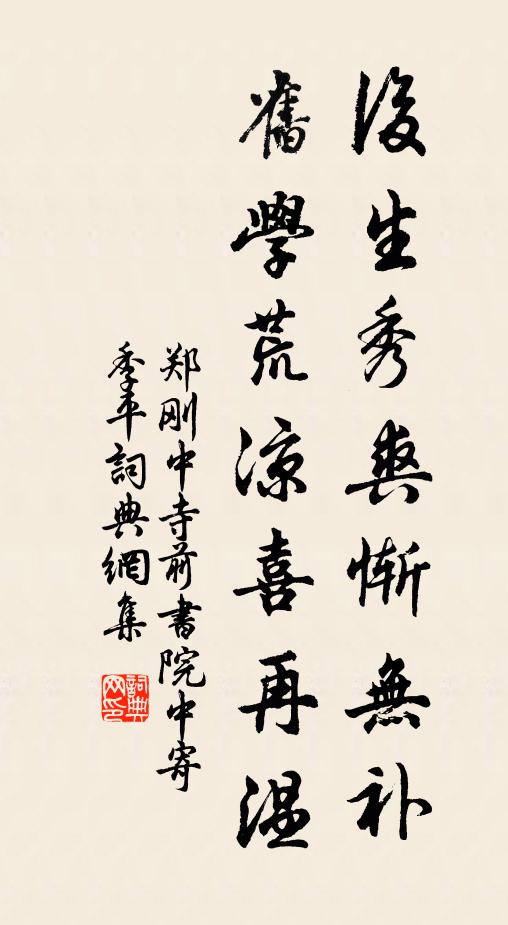 後生秀爽慚無补
舊學荒凉喜再温
郑刚中寺前書院中寄
季平詞典網集
詞典网印